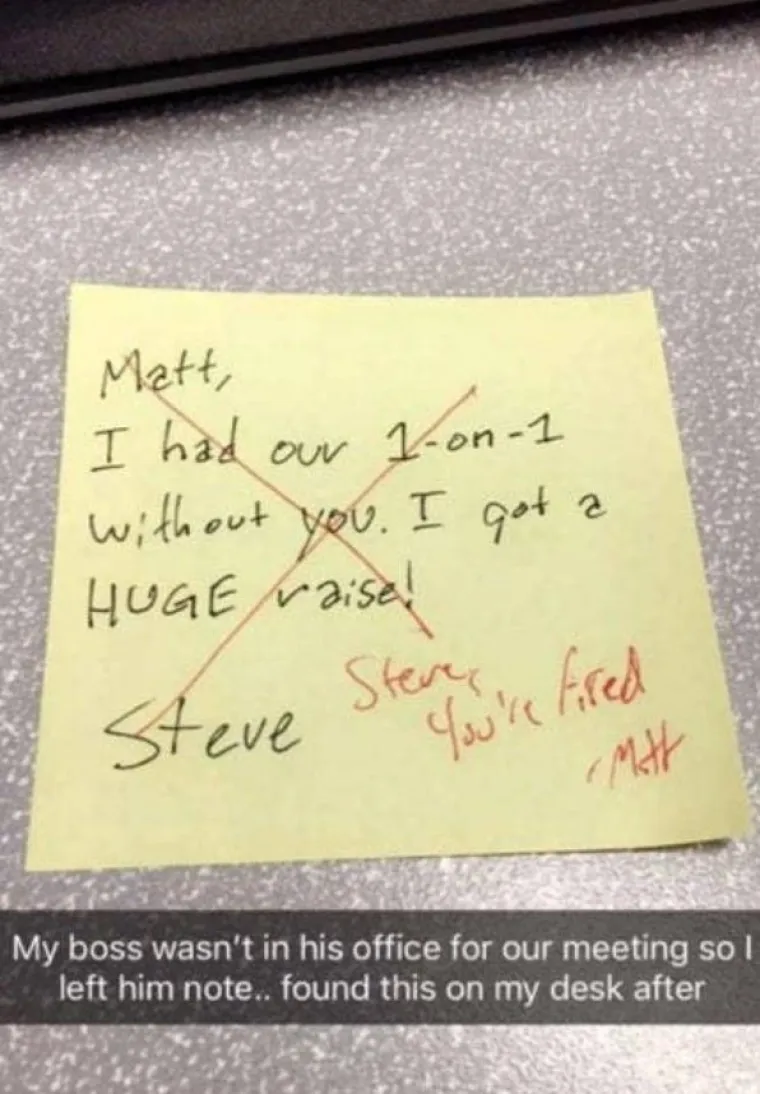 Matt,
I had our 1-on-1
without you. I got a
HUGE raise!
Steve
Steve,
You're fired
- Matt
My boss wasn't in his office for our meeting so I
left him note.. found this on my desk after